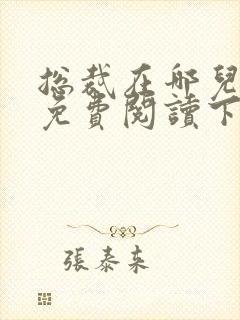 總裁在哪兒
免費閱讀下
張泰来